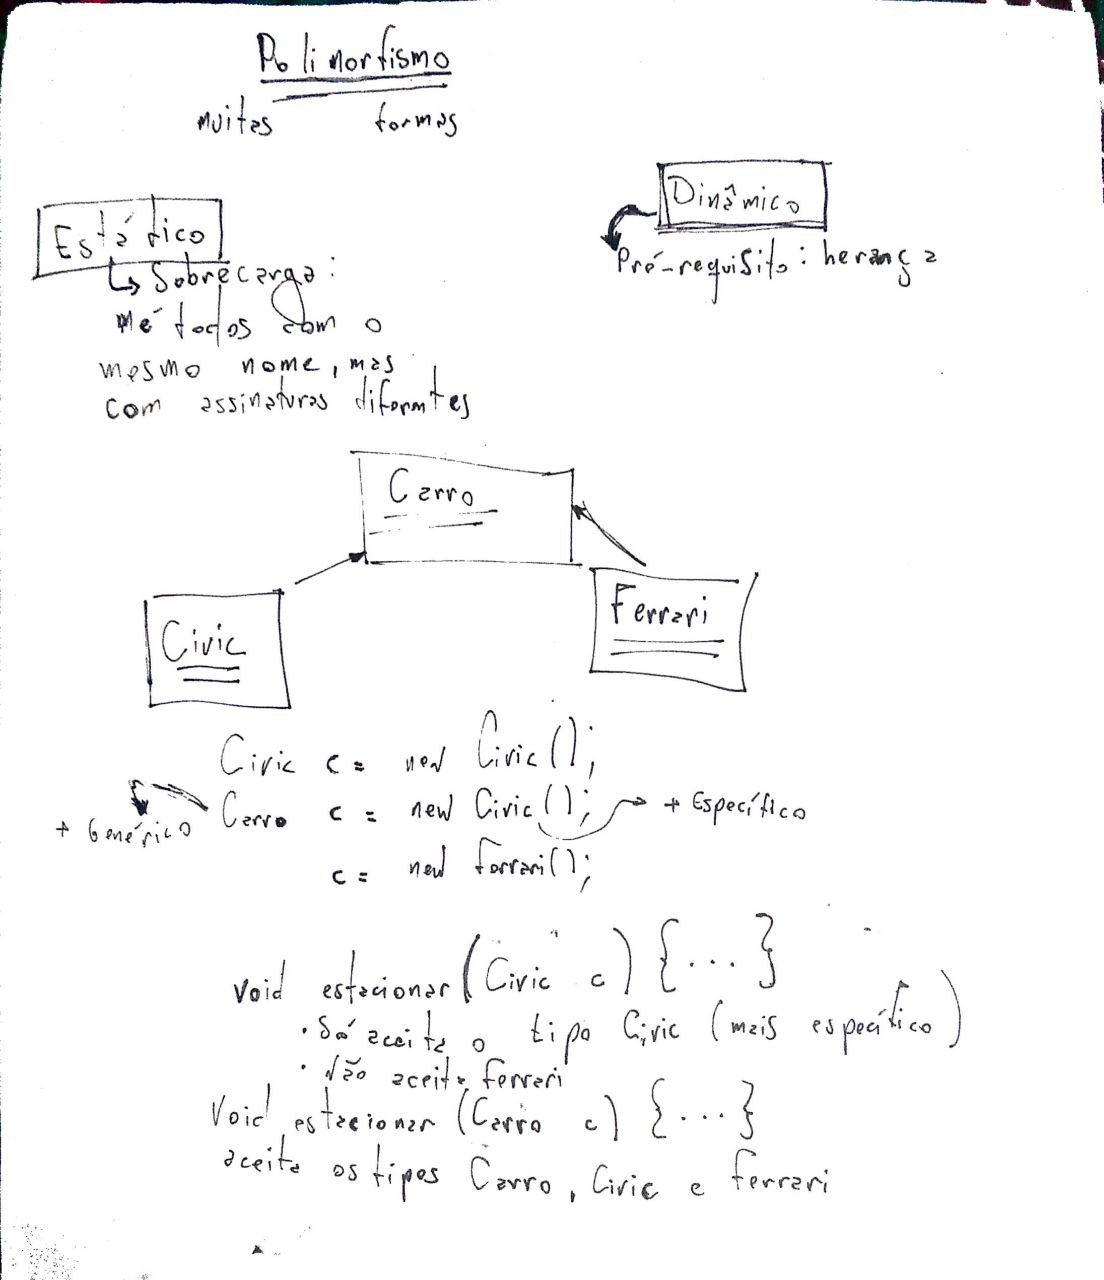 Polimorfismo
muitas formas
Estático
↳ Sobrecarga:
Métodos com o
mesmo nome, mas
com assinaturas diferentes
Dinâmico
Pré-requisito: herança
Carro
Civic
Ferrari
Civic c = new Civic();
Carro c = new Civic(); → + Específico
+ Genérico
c = new Ferrari();
void estacionar (Civic c) {...}
· Só aceita o tipo Civic (mais específico)
· Não aceita Ferrari
Void estacionar (Carro c) {...}
aceita os tipos Carro, Civic e Ferrari